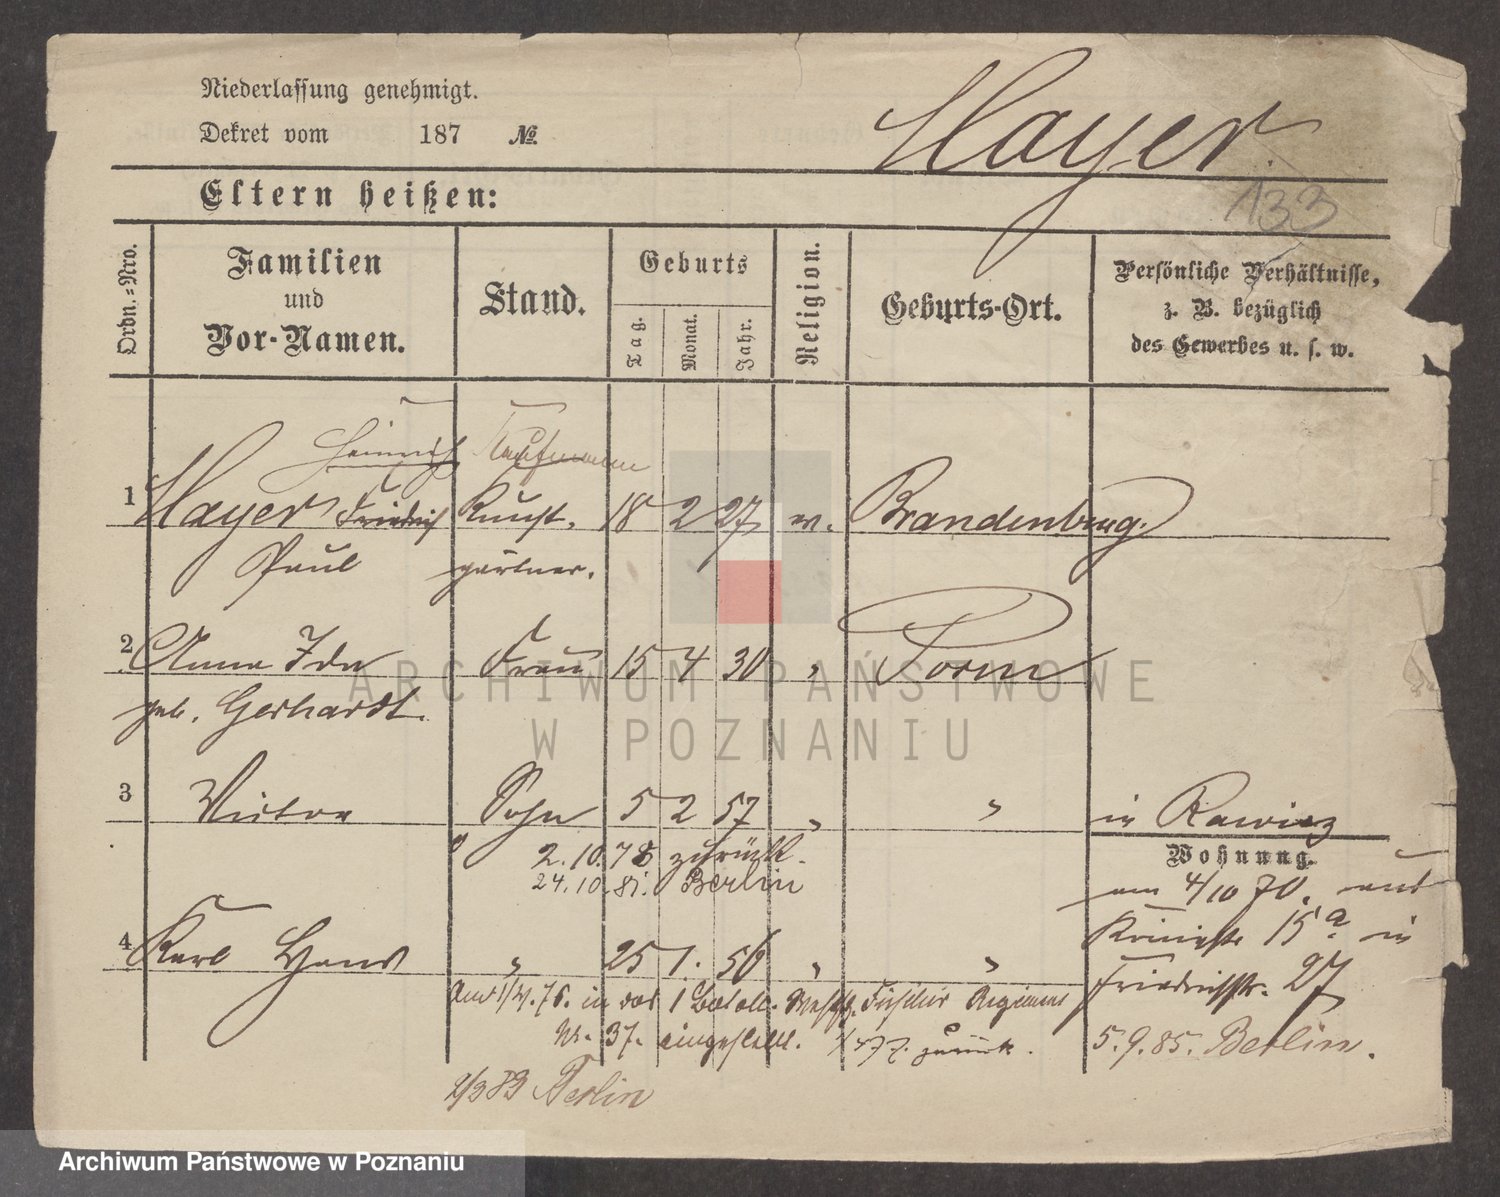 Niederlassung genehmigt.
Dekret vom 187 №.
Mayer.
133
Eltern heißen:
Ordn.=Nro.
Familien und Vor-Namen.
Stand.
Geburts
Tag.
Monat.
Jahr.
Religion.
Geburts-Ort.
Persönliche Verhältnisse, z. B. bezüglich des Gewerbes u. s. w.
Heinrich Kaufmann
1 Mayer Friedrich Kunst- 18 2 27 ev. Brandenburg.
Paul gärtner.
2 Anna Ida Frau 15 4 30 " Posen
geb. Gerhardt.
3 Victor Sohn 5 2 57 " " in Rawicz
Wohnung.
2.10.78 zurück.
24.10.81. Berlin
am 4/10 70. aus
Königstr 15a in
4 Karl Hans " 25 1. 56 " "
Friedrichstr. 27
Am 1/4.76. in das 1 Batall. Westf. Füsilier Regiment
Nr. 37. eingestellt. zurück.
5.9.85. Berlin.
2/3 83 Berlin
ARCHIWUM PAŃSTWOWE
W POZNANIU
Archiwum Państwowe w Poznaniu